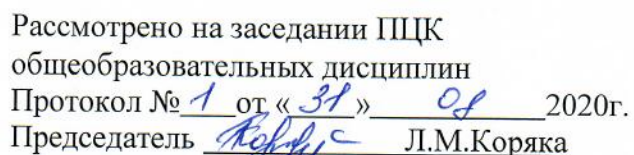 Рассмотрено на заседании ПЦК
общеобразовательных дисциплин
Протокол № 1 от « 31 » 08 2020г.
Председатель Л.М.Коряка